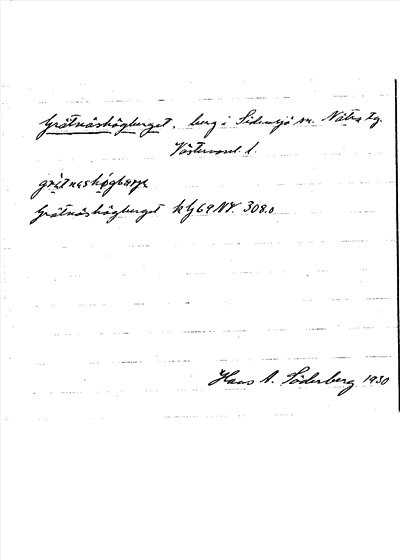 Grätnäshögberget, berg i Sidensjö sn. Nätra tg.
Västernorrl. l.
grätnashögbärje
Grätnäshögberget kbj 69 NV. 308.0
Hans A. Söderberg 1930